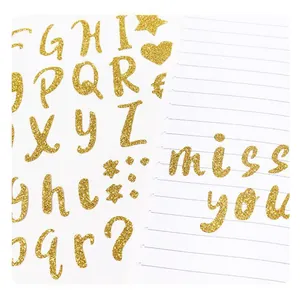 G H I
P Q R
X Y Z
g h i
p q r ?
miss
you